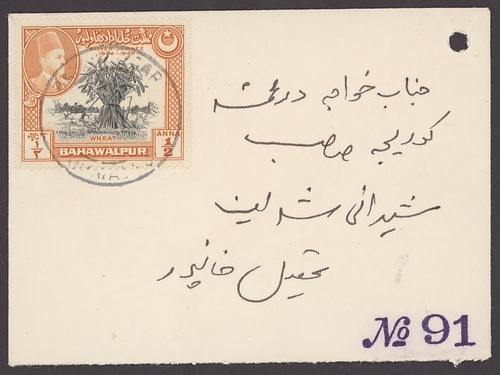 مملکت خداداد بهاولپور
SILVER JUBILEE
1924-1949
WHEAT
ANNA
1/2
BAHAWALPUR
جناب خواجہ در محمد
کوریجہ صاحب
شیدانی شریف
تحصیل خانپور
№ 91